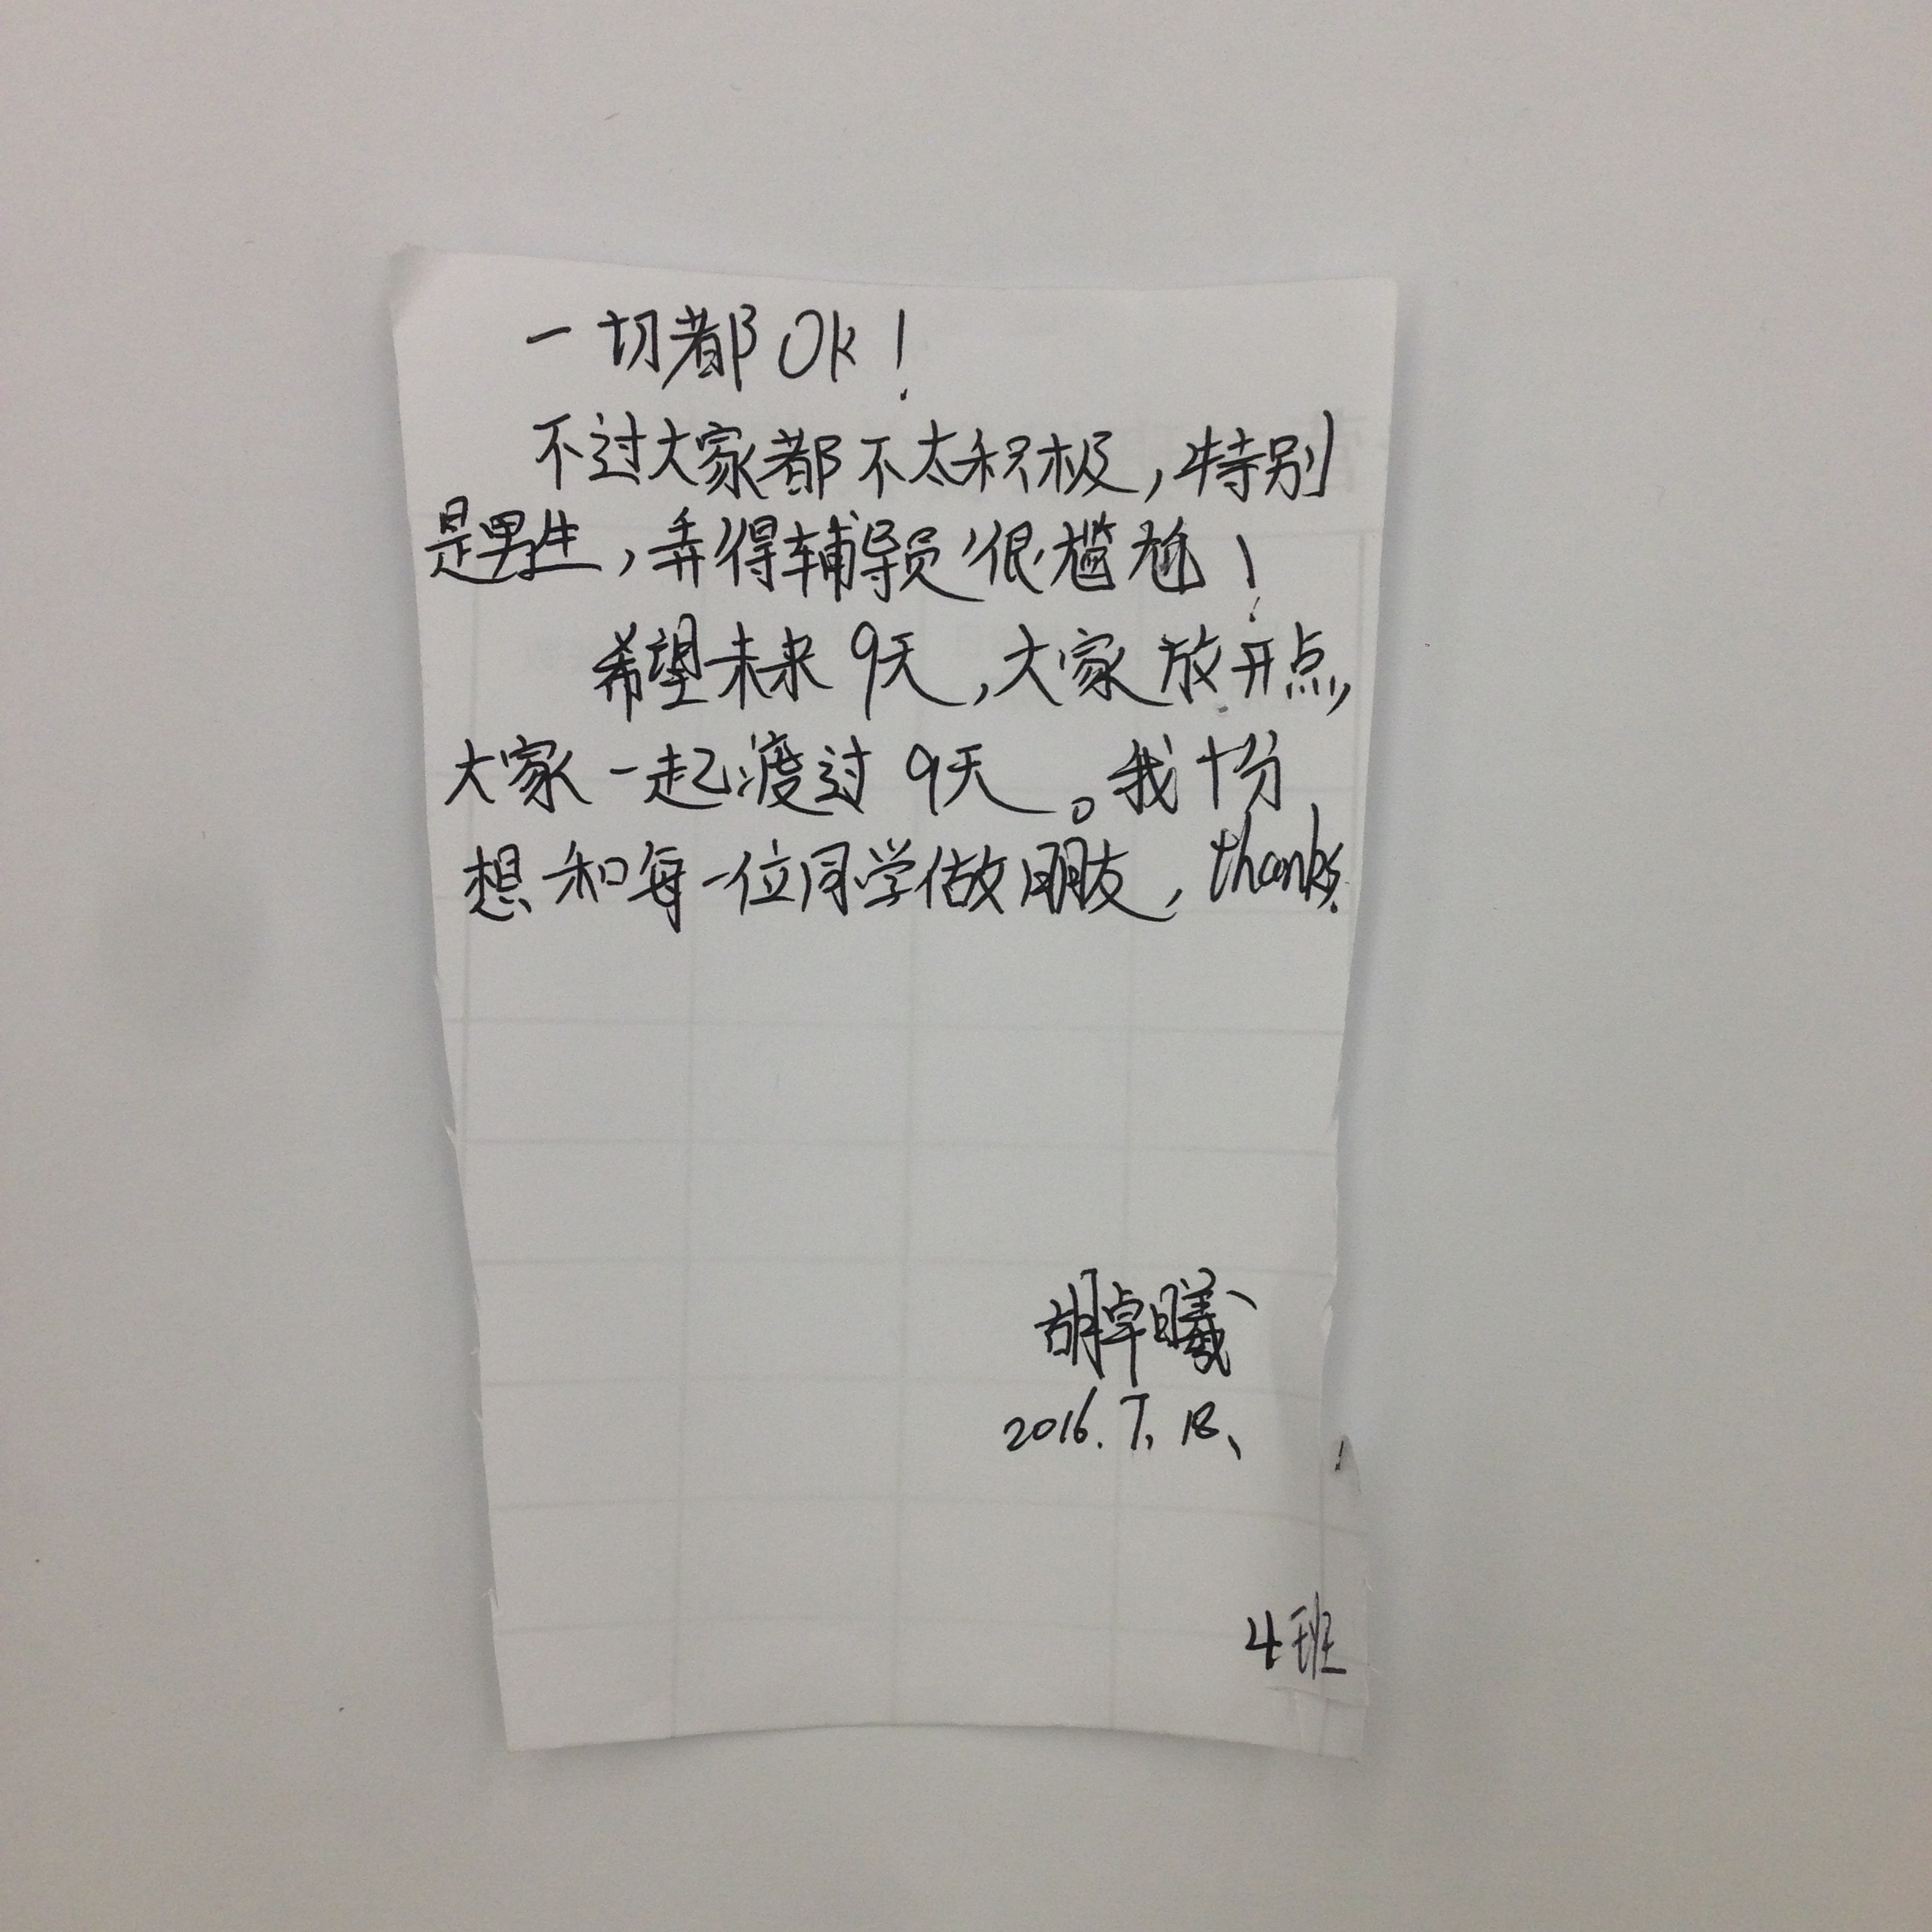 一切都Ok!
不过大家都不太积极,特别
是男生,弄得辅导员很尴尬!
希望未来9天,大家放开点,
大家一起渡过9天。我十分
想和每一位同学做朋友,thanks.
胡卓曦
2016.7.18、
4班